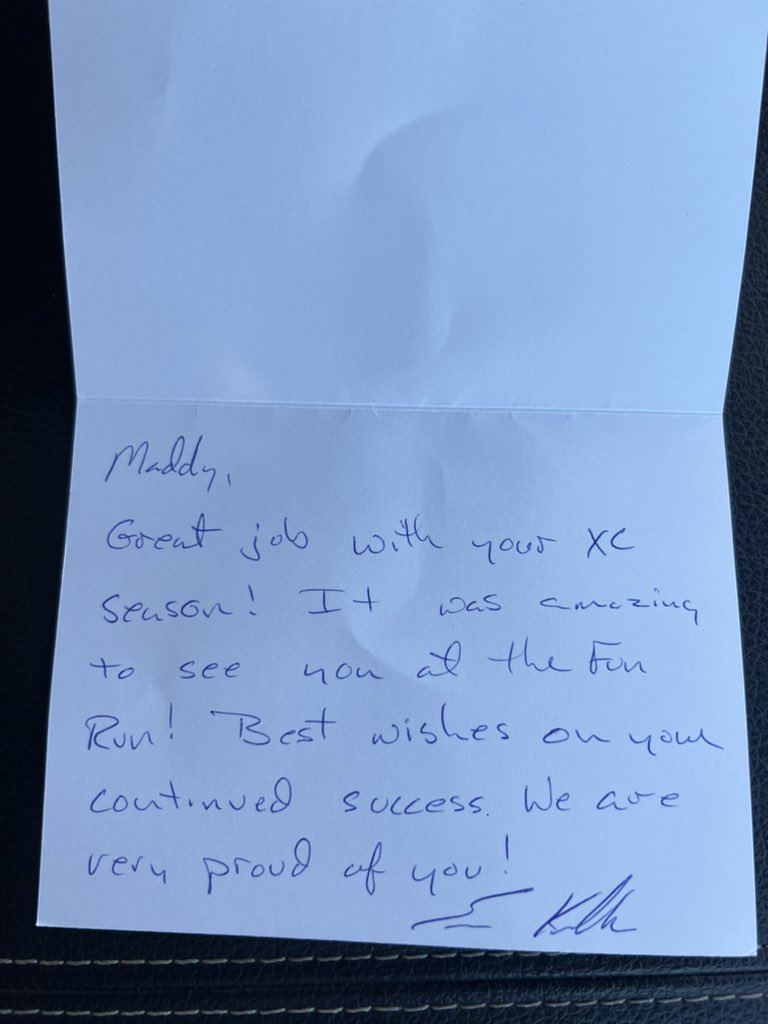 Maddy,
Great job with your XC
season! It was amazing
to see you at the Fun
Run! Best wishes on your
continued success. We are
very proud of you!